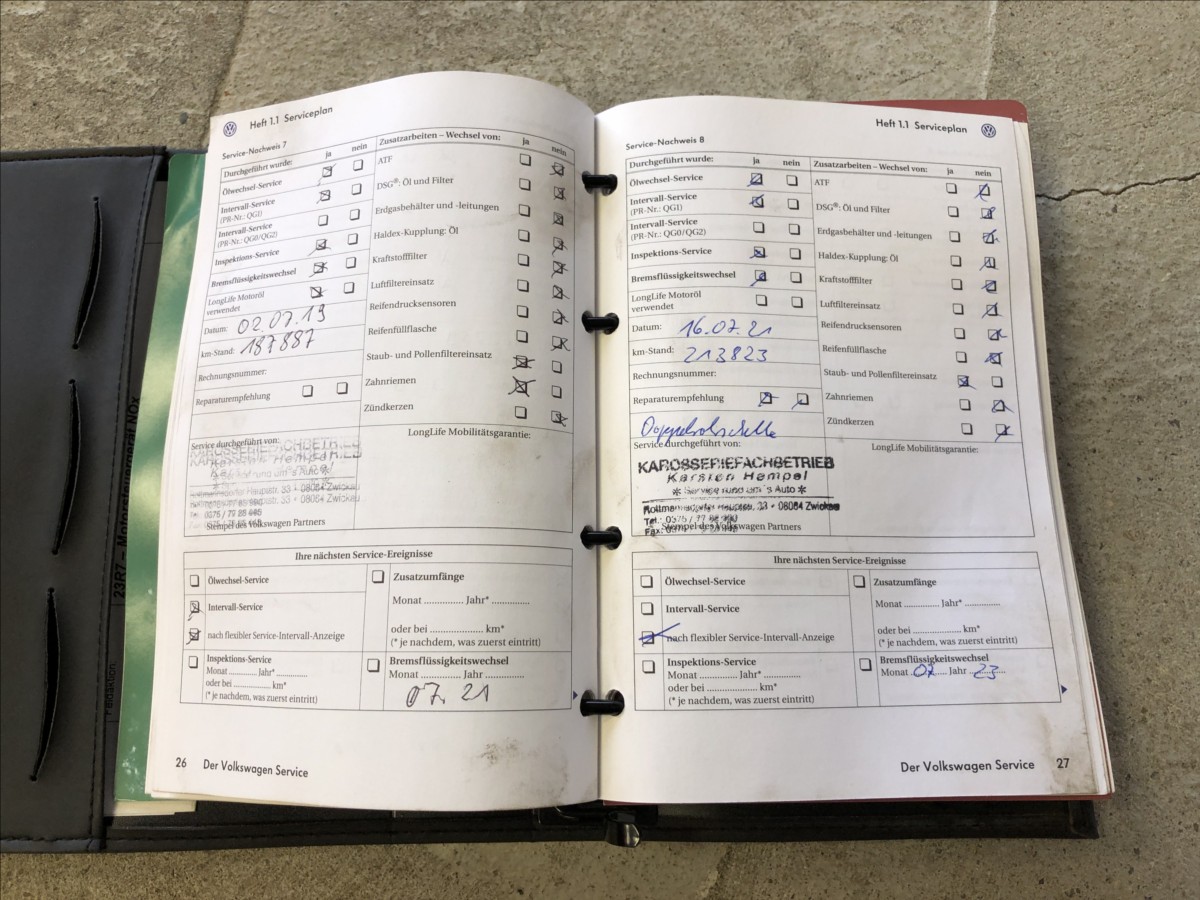 Heft 1.1 Serviceplan
Service-Nachweis 7
Durchgeführt wurde: ja nein
Ölwechsel-Service
Intervall-Service
(PR-Nr.: QG1)
Intervall-Service
(PR-Nr.: QG0/QG2)
Inspektions-Service
Bremsflüssigkeitswechsel
LongLife Motoröl
verwendet
Datum: 02.07.19
km-Stand: 187887
Rechnungsnummer:
Reparaturempfehlung
Zusatzarbeiten – Wechsel von: ja nein
ATF
DSG®: Öl und Filter
Erdgasbehälter und -leitungen
Haldex-Kupplung: Öl
Kraftstofffilter
Luftfiltereinsatz
Reifendrucksensoren
Reifenfüllflasche
Staub- und Pollenfiltereinsatz
Zahnriemen
Zündkerzen
Service durchgeführt von:
KAROSSERIEFACHBETRIEB
33 • 08064 Zwickau
Stempel des Volkswagen Partners
LongLife Mobilitätsgarantie:
Ihre nächsten Service-Ereignisse
Ölwechsel-Service
Intervall-Service
nach flexibler Service-Intervall-Anzeige
Inspektions-Service
Monat ........... Jahr* ...........
oder bei ........... km*
(* je nachdem, was zuerst eintritt)
Zusatzumfänge
Monat ........... Jahr* ...........
oder bei ........... km*
(* je nachdem, was zuerst eintritt)
Bremsflüssigkeitswechsel
Monat ........... Jahr ...........
07. 21
26 Der Volkswagen Service
Heft 1.1 Serviceplan
Service-Nachweis 8
Durchgeführt wurde: ja nein
Ölwechsel-Service
Intervall-Service
(PR-Nr.: QG1)
Intervall-Service
(PR-Nr.: QG0/QG2)
Inspektions-Service
Bremsflüssigkeitswechsel
LongLife Motoröl
verwendet
Datum: 16.07.21
km-Stand: 213823
Rechnungsnummer:
Reparaturempfehlung
Zusatzarbeiten – Wechsel von: ja nein
ATF
DSG®: Öl und Filter
Erdgasbehälter und -leitungen
Haldex-Kupplung: Öl
Kraftstofffilter
Luftfiltereinsatz
Reifendrucksensoren
Reifenfüllflasche
Staub- und Pollenfiltereinsatz
Zahnriemen
Zündkerzen
Service durchgeführt von:
KAROSSERIEFACHBETRIEB
Karsten Hempel
* Service rund um's Auto *
33 • 08064 Zwickau
Stempel des Volkswagen Partners
LongLife Mobilitätsgarantie:
Ihre nächsten Service-Ereignisse
Ölwechsel-Service
Intervall-Service
nach flexibler Service-Intervall-Anzeige
Inspektions-Service
Monat ........... Jahr* ...........
oder bei ........... km*
(* je nachdem, was zuerst eintritt)
Zusatzumfänge
Monat ........... Jahr* ...........
oder bei ........... km*
(* je nachdem, was zuerst eintritt)
Bremsflüssigkeitswechsel
Monat 07 Jahr 23
Der Volkswagen Service 27
23R7 – Motorsteuergerät NOx